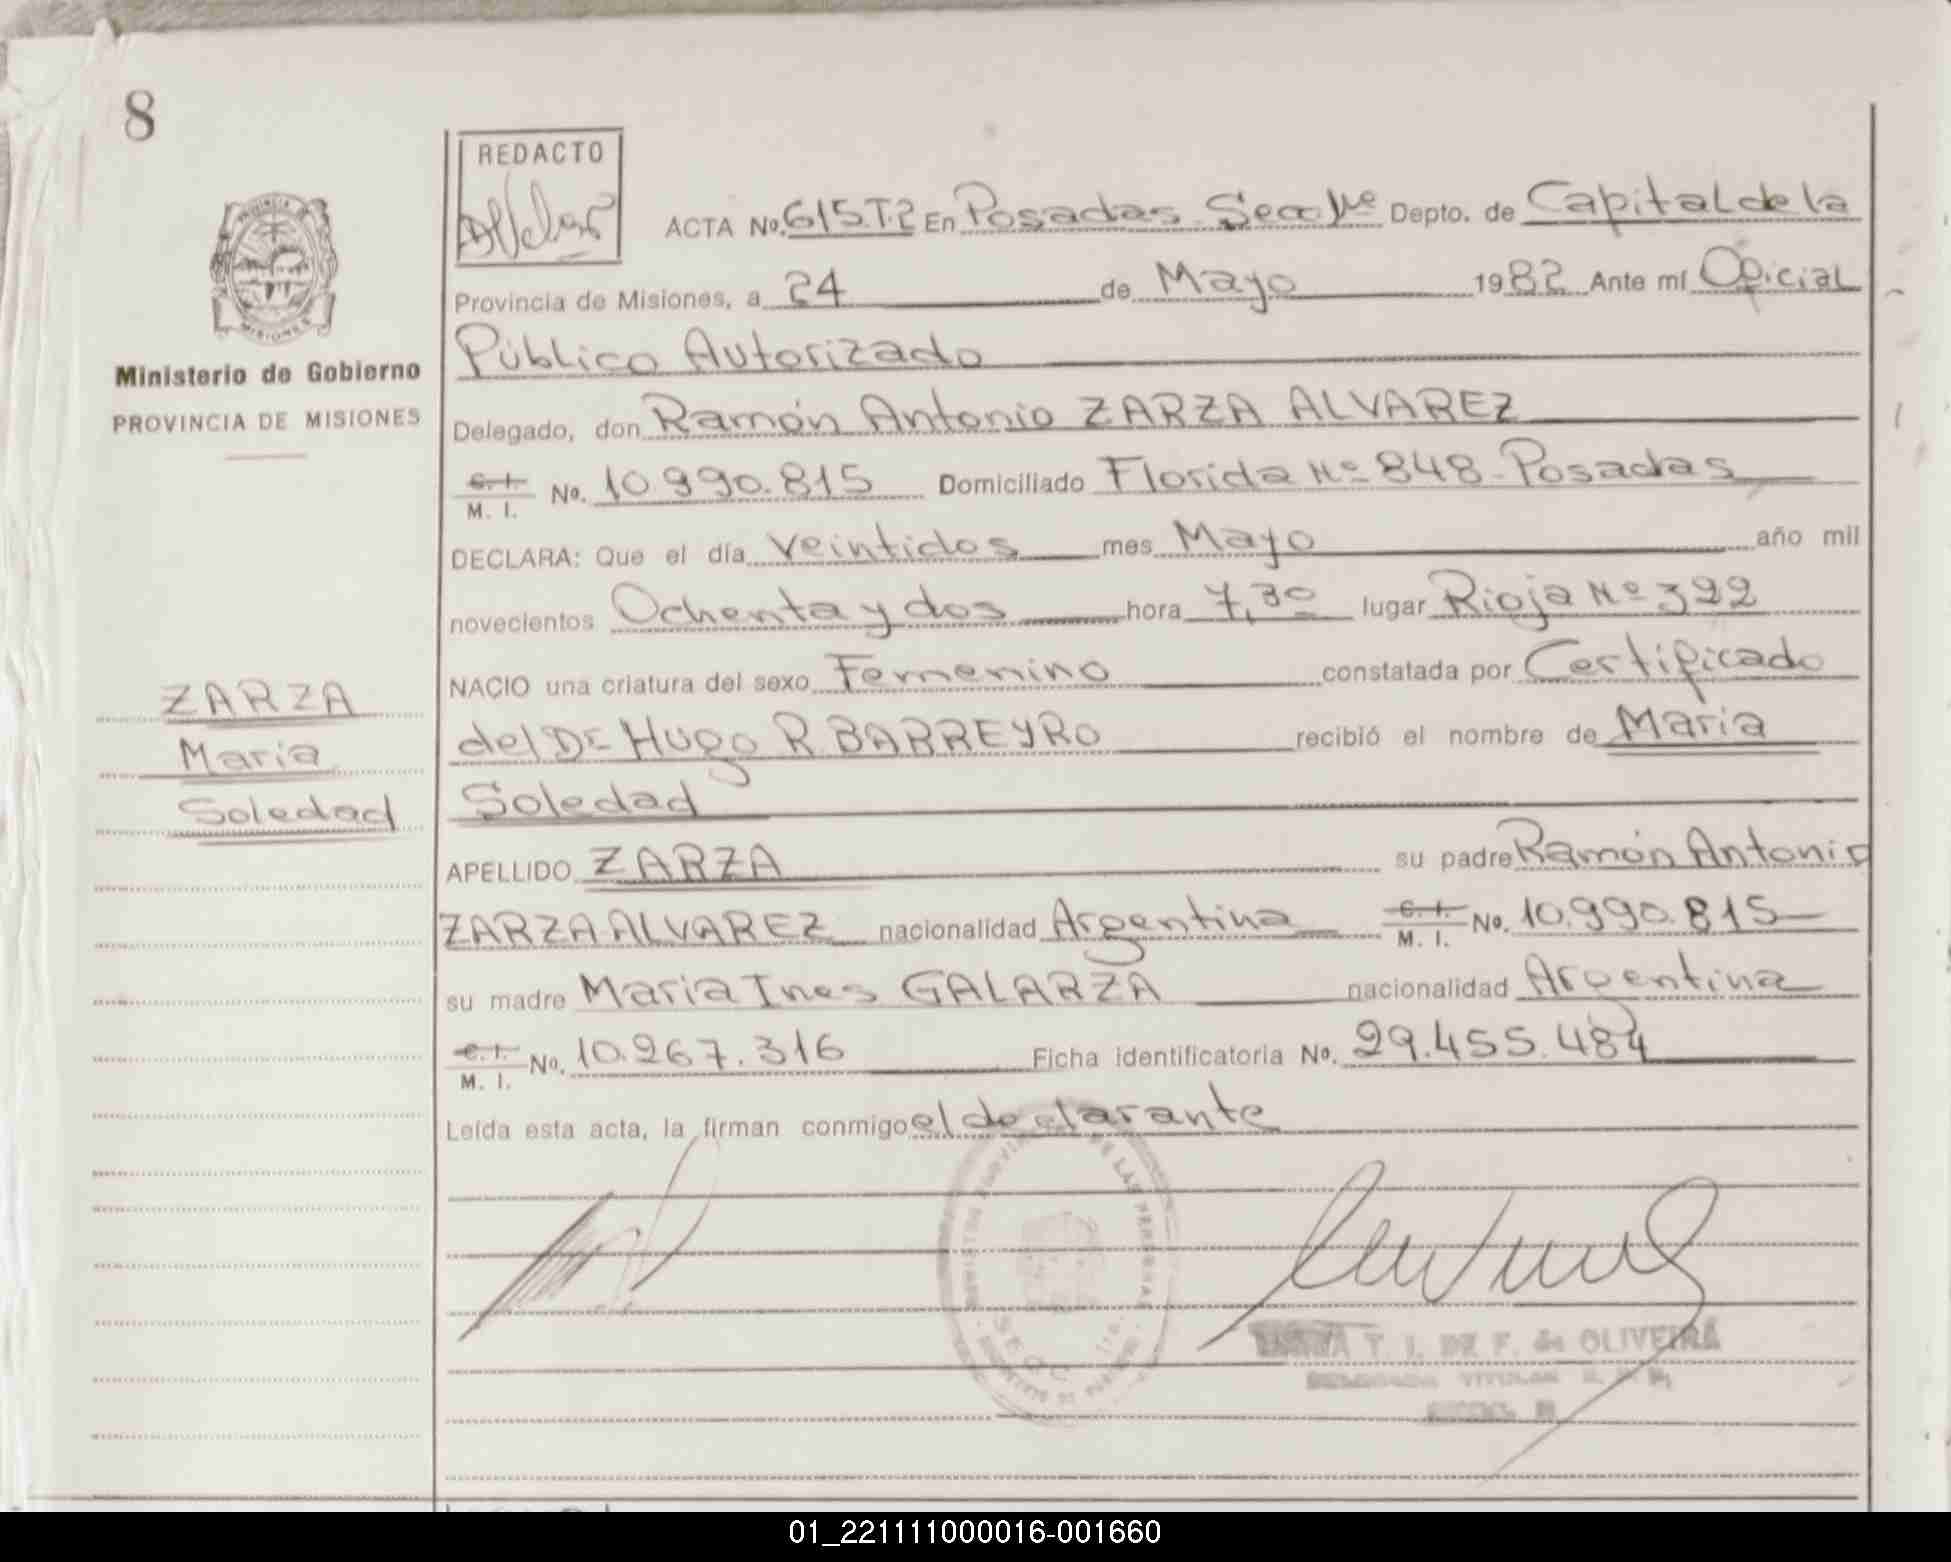 8
REDACTO
ACTA No. 615.T.2 En Posadas Secc 1ra Depto. de Capital de la
Provincia de Misiones, a 24 de Mayo 1982 Ante mí Oficial
Público Autorizado
Ministerio de Gobierno
PROVINCIA DE MISIONES
Delegado, don Ramón Antonio ZARZA ALVAREZ
C. I. M. I. No. 10.990.815 Domiciliado Florida Nº 848 - Posadas
DECLARA: Que el día veintidos mes Mayo año mil
novecientos Ochenta y dos hora 7,30 lugar Rioja Nº 322
NACIO una criatura del sexo Femenino constatada por Certificado
del Dr Hugo R BARREYRO recibió el nombre de Maria
Soledad
ZARZA
Maria
Soledad
APELLIDO ZARZA su padre Ramón Antonio
ZARZA ALVAREZ nacionalidad Argentina C. I. M. I. No. 10.990.815
su madre Maria Ines GALARZA nacionalidad Argentina
C. I. M. I. No. 10.267.316 Ficha identificatoria No. 29.455.484
Leída esta acta, la firman conmigo el declarante
DE LAS PERSONAS
T. I. DE F. de OLIVEIRA
TITULAR
01_221111000016-001660